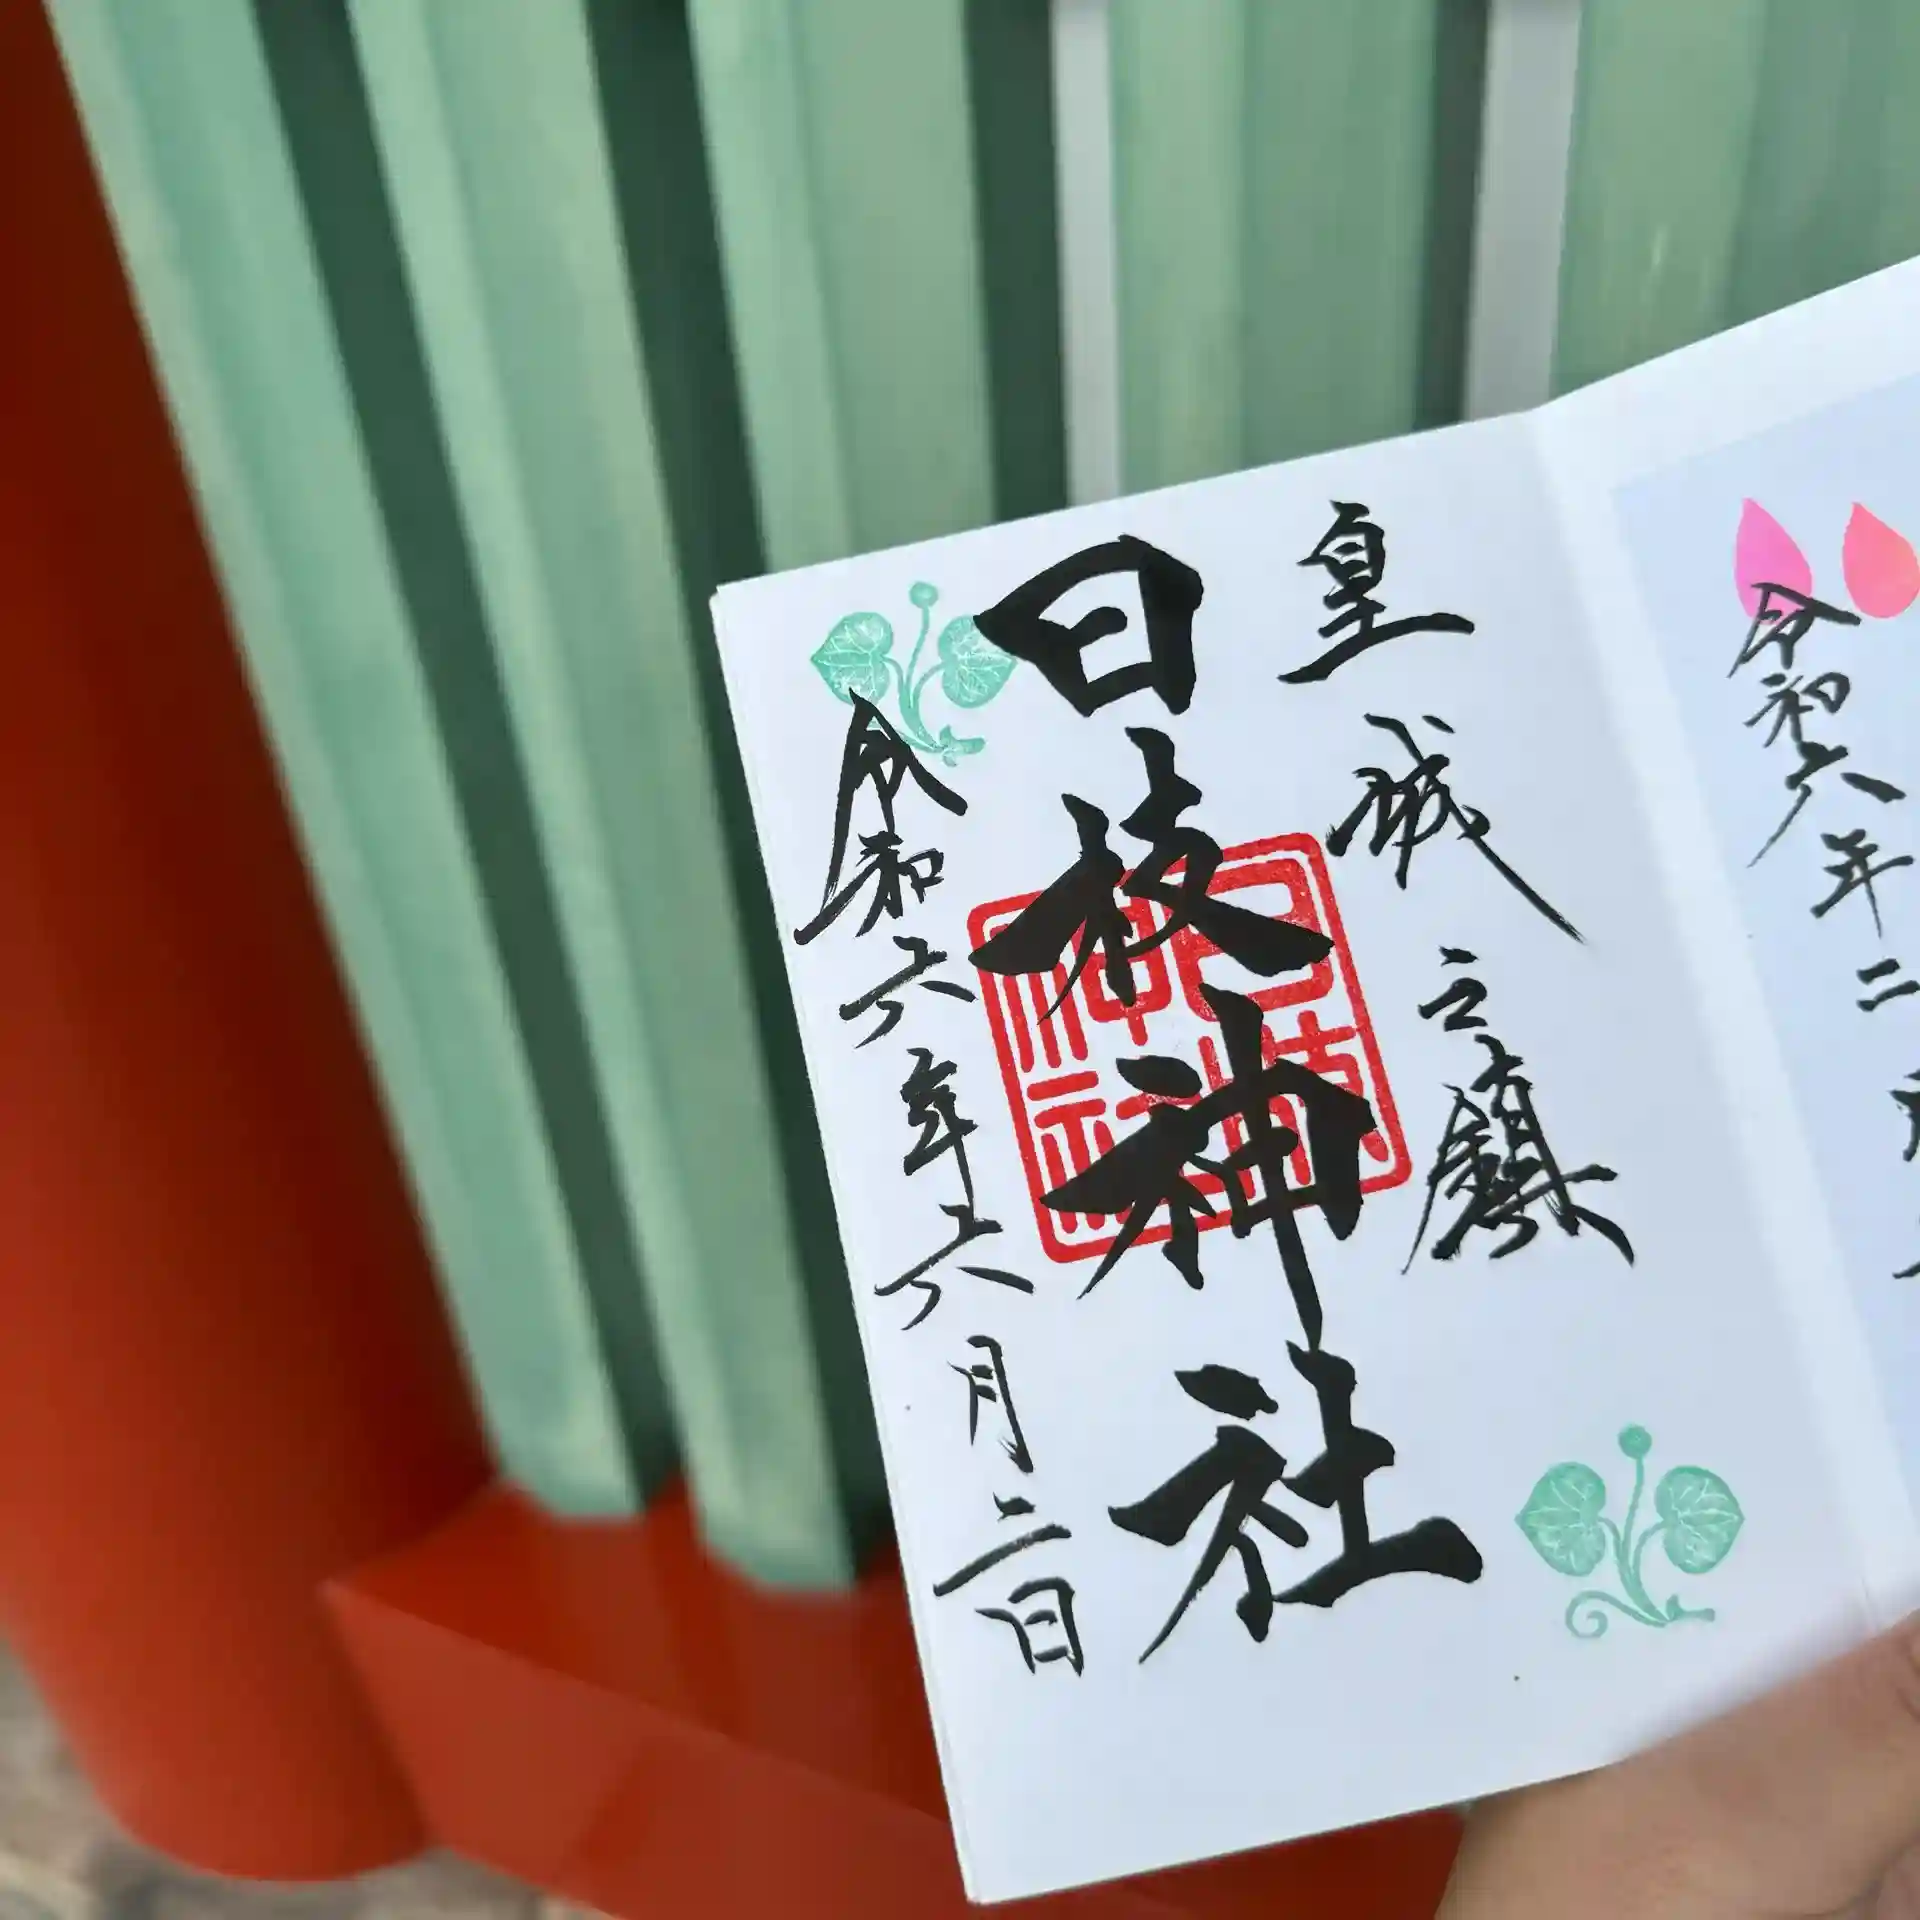 皇城之鎮
日枝神社
日枝神社
令和六年六月二日
令和六年二